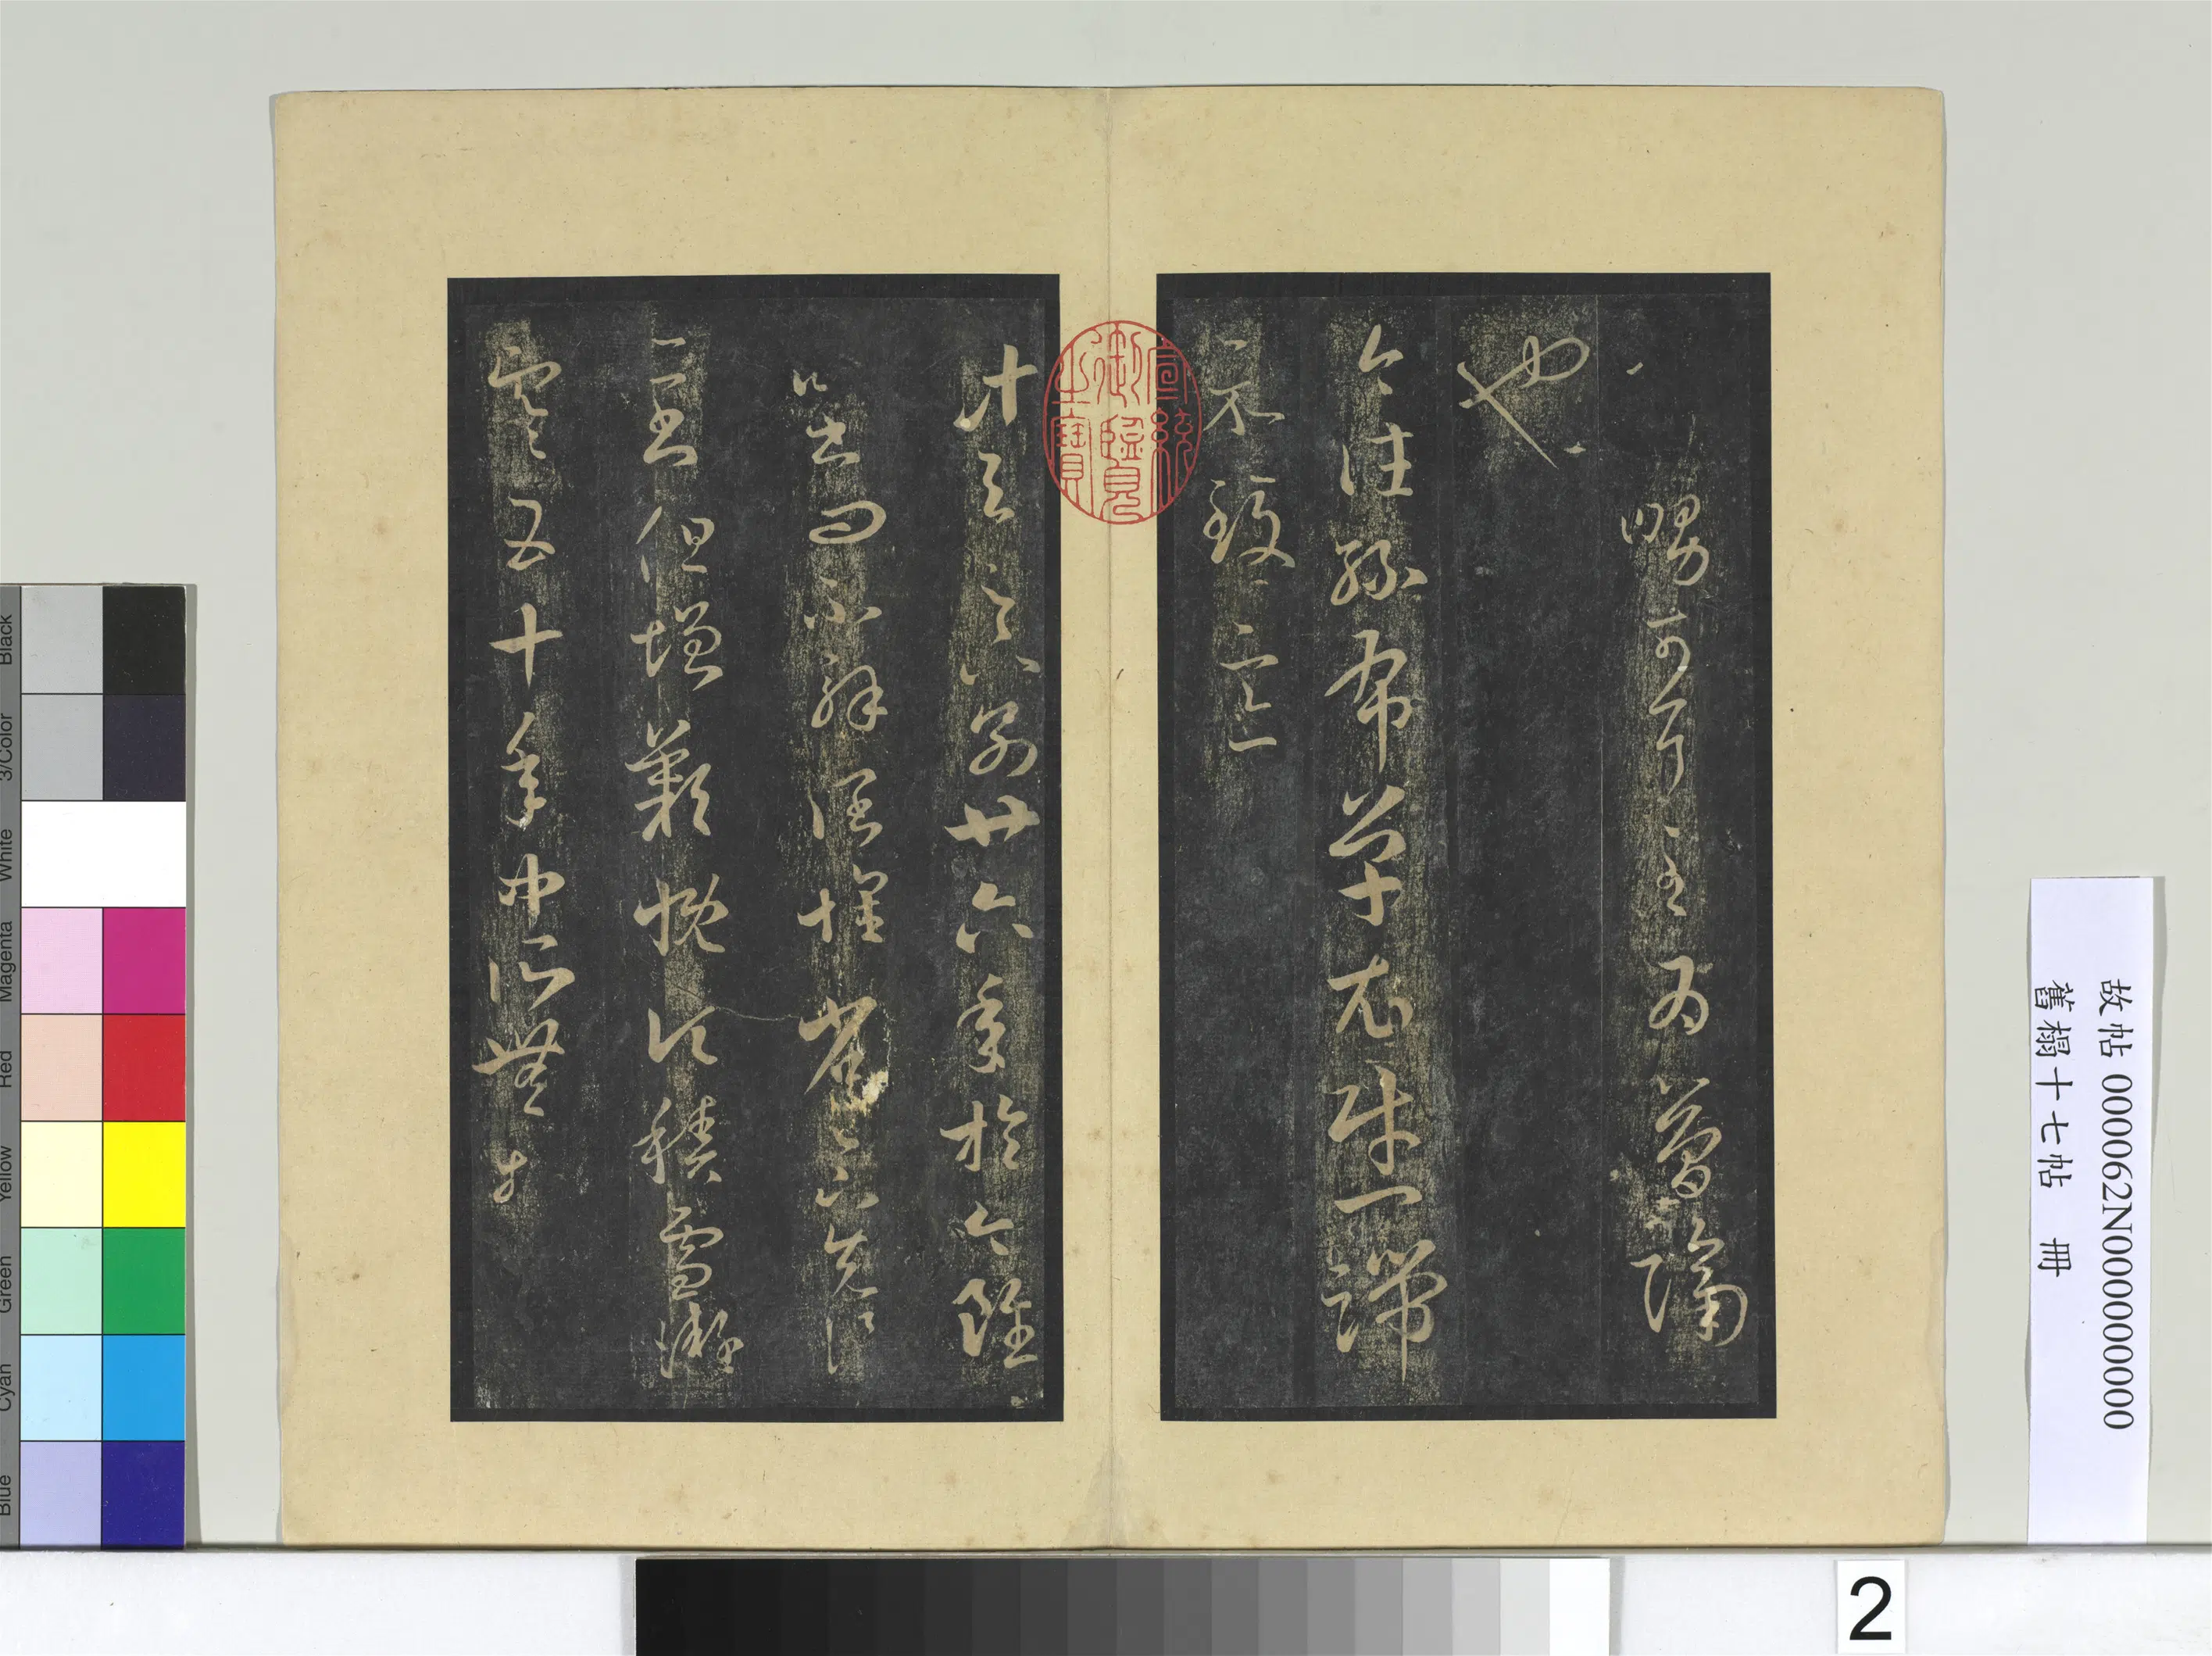 舅可耳至為簡隔
也
今往絲布單衣財一端
示致意
計與足下別廿六年於今雖
時書問不解闊懷省足下先後
二書但增歎慨頃積雪凝
寒五十年中所無想
宣統御覽之寶
故帖 000062N000000000
舊榻十七帖 冊
2
Black
3/Color
White
Magenta
Red
Yellow
Green
Cyan
Blue